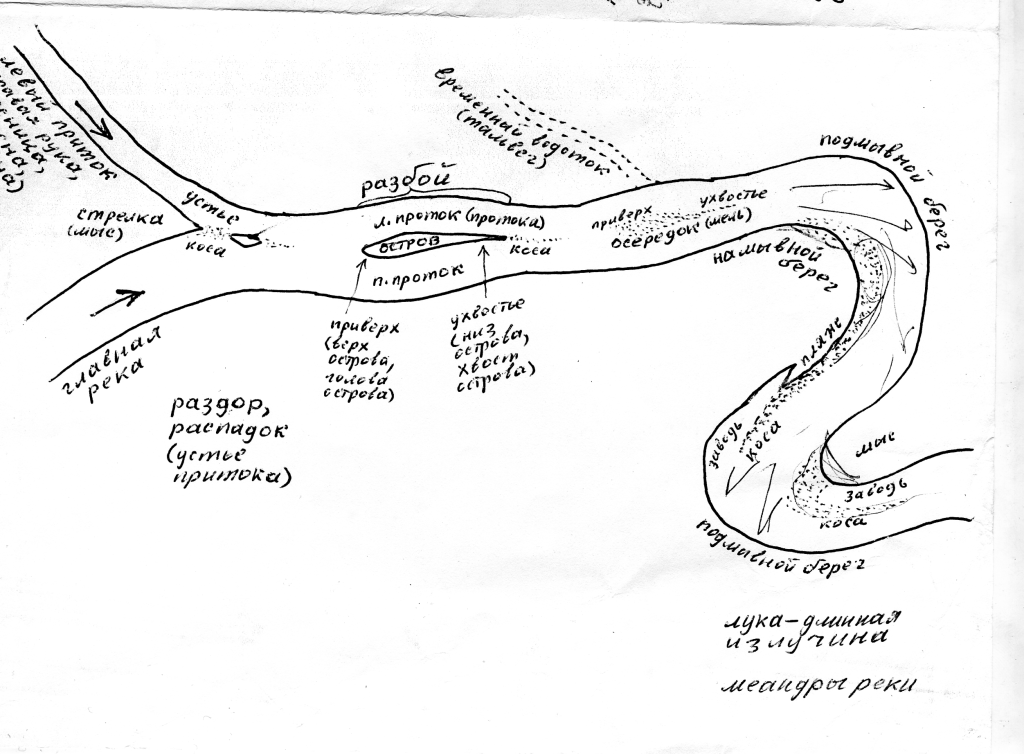 левый приток
рукав
стрелка
(мыс)
устье
коса
главная
река
раздор,
распадок
(устье
притока)
раздой
л. проток (протока)
остров
коса
п. проток
приверх
(верх
острова,
голова
острова)
ухвостье
(низ
острова,
хвост
острова)
временный водоток
(тальвег)
приверх
ухвостье
осередок (мель)
подмывной
берег
намывной
берег
пляж
заводь
коса
мыс
заводь
коса
подмывной берег
лука – длинная
излучина
меандры реки